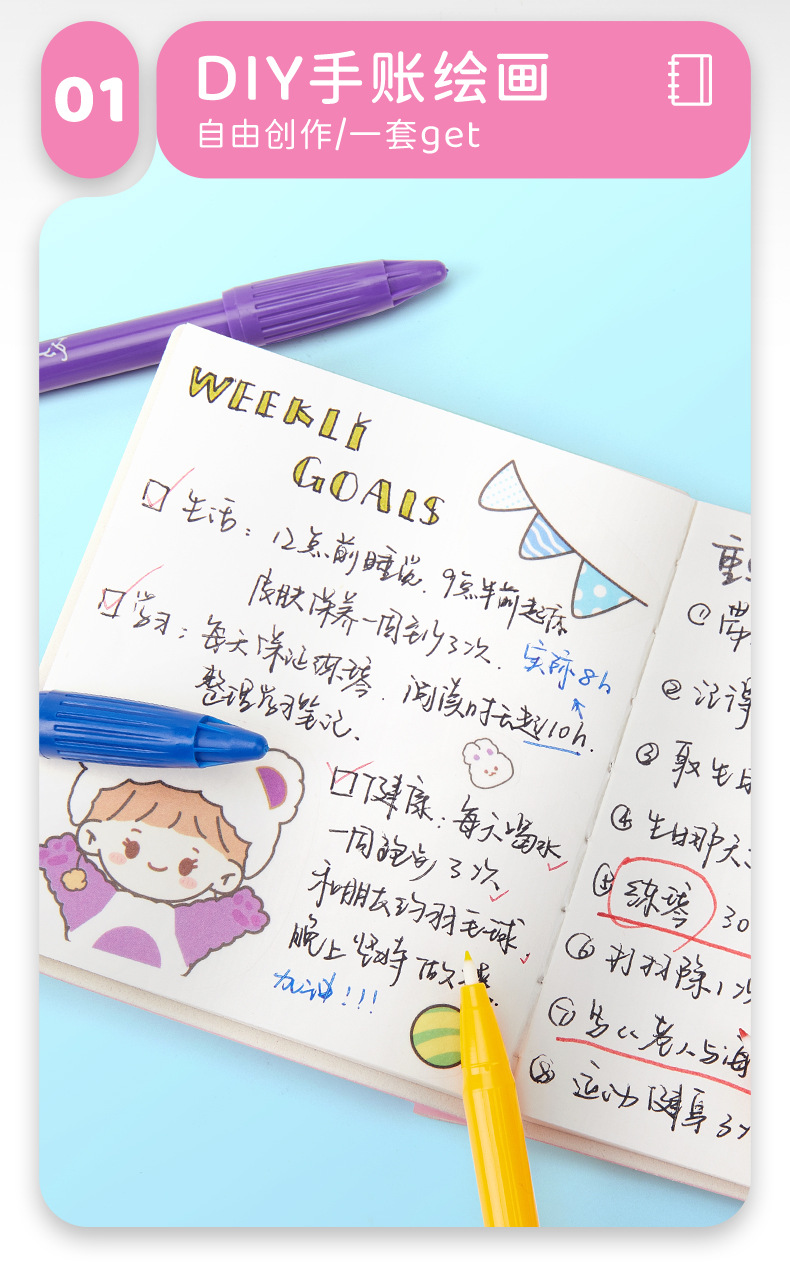 01
DIY手账绘画
自由创作/一套get
WEEKLY
GOALS
生活：12点前睡觉，9点半前起床
皮肤保养一周到少3次．
实际8h
学习：每天保证练琴．阅读时长超10h．
整理学习笔记．
健康：每天喝水
一周跑步3次
和朋友约羽毛球．
晚上坚持做
加油！！！
①
② 记得
③ 取生日
④ 生日那天
⑤ 练琴 30
⑥ 打扫除1次
⑦ 老人与海
⑧ 运动健身3